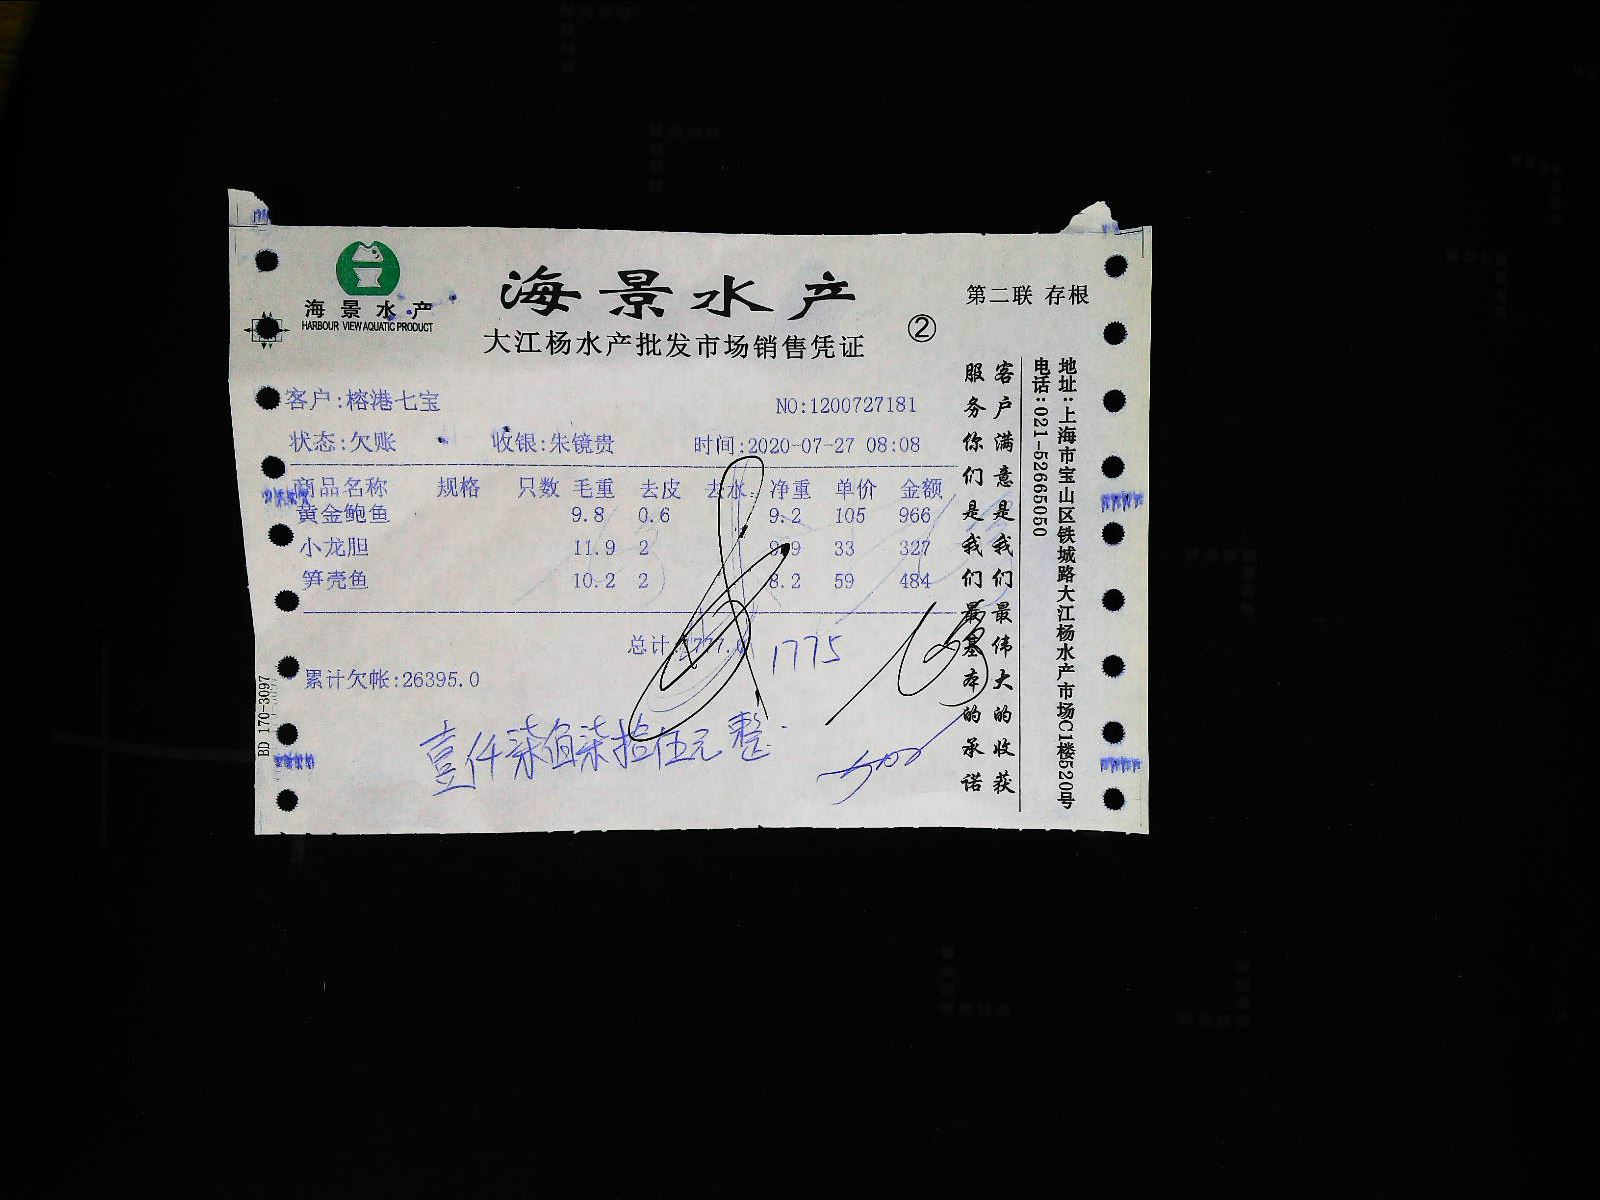 海景水产
HARBOUR VIEW AQUATIC PRODUCT
海景水产
大江杨水产批发市场销售凭证
②
第二联 存根
客户:榕港七宝
NO:1200727181
状态:欠账 收银:朱镜贵 时间:2020-07-27 08:08
商品名称 规格 只数 毛重 去皮 去水 净重 单价 金额
黄金鲍鱼 9.8 0.6 9.2 105 966
小龙胆 11.9 2 9.9 33 327
笋壳鱼 10.2 2 8.2 59 484
总计:1777.0
1775
累计欠帐:26395.0
壹仟柒佰柒拾伍元整
客户满意是我们最伟大的收获
服务你们是我们最基本的承诺
地址:上海市宝山区铁城路大江杨水产市场C1楼520号
电话:021-52665050
BD 170-3097